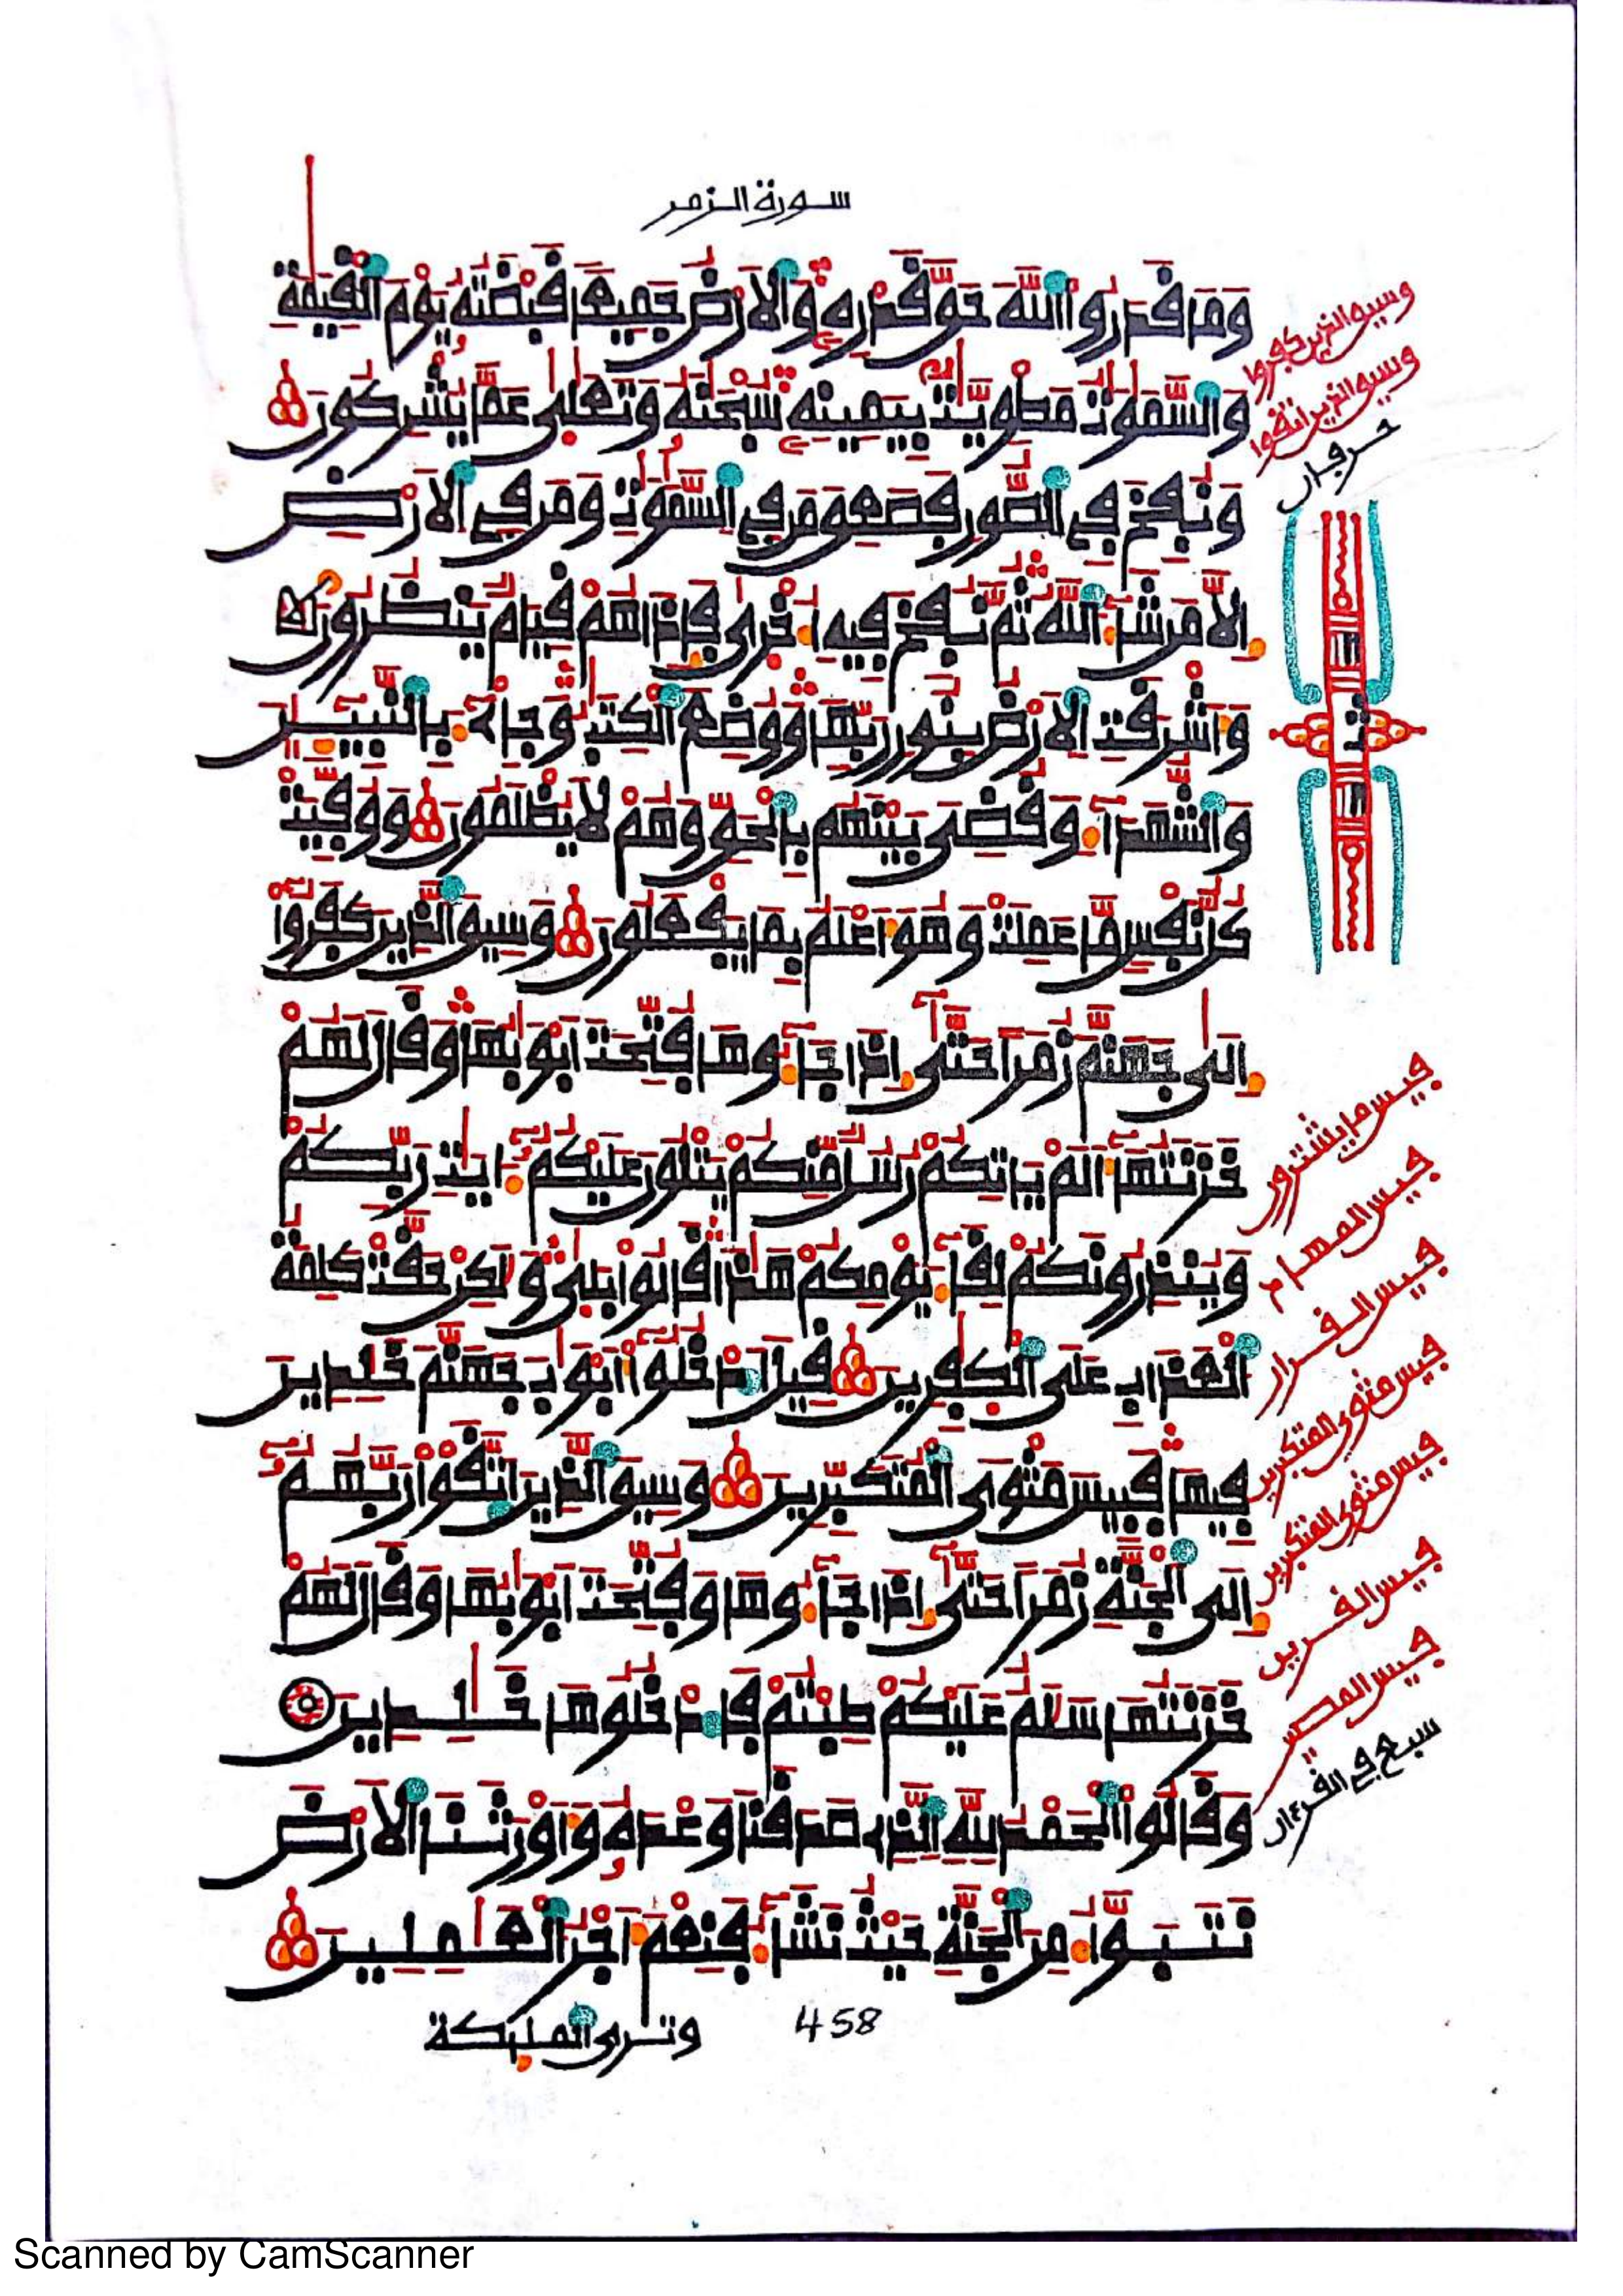 سورة الزمر
وَمَا قَدَرُوا اللَّهَ حَقَّ قَدْرِهِ وَالَارْضُ جَمِيعًا قَبْضَتُهُ يَوْمَ الْقِيَٰمَةِ
وَالسَّمَٰوَٰتُ مَطْوِيَّٰتٌ بِيَمِينِهِ سُبْحَٰنَهُ وَتَعَٰلَىٰ عَمَّا يُشْرِكُونَ
وَنُفِخَ فِي الصُّورِ فَصَعِقَ مَن فِي السَّمَٰوَٰتِ وَمَن فِي الَارْضِ
إِلَّا مَن شَاءَ اللَّهُ ثُمَّ نُفِخَ فِيهِ أُخْرَىٰ فَإِذَا هُمْ قِيَامٌ يَنظُرُونَ
وَأَشْرَقَتِ الَارْضُ بِنُورِ رَبِّهَا وَوُضِعَ الْكِتَٰبُ وَجِاْىءَ بِالنَّبِيـِٕينَ
وَالشُّهَدَاءِ وَقُضِيَ بَيْنَهُم بِالْحَقِّ وَهُمْ لَا يُظْلَمُونَ وَوُفِّيَتْ
كُلُّ نَفْسٍ مَّا عَمِلَتْ وَهُوَ أَعْلَمُ بِمَا يَفْعَلُونَ وَسِيقَ الَّذِينَ كَفَرُوا
إِلَىٰ جَهَنَّمَ زُمَرًا حَتَّىٰ إِذَا جَاءُوهَا فُتِّحَتَ ابْوَٰبُهَا وَقَالَ لَهُمْ
خَزَنَتُهَا أَلَمْ يَاتِكُمْ رُسُلٌ مِّنكُمْ يَتْلُونَ عَلَيْكُمْ ءَايَٰتِ رَبِّكُمْ
وَيُنذِرُونَكُمْ لِقَاءَ يَوْمِكُمْ هَٰذَا قَالُوا بَلَىٰ وَلَٰكِنْ حَقَّتْ كَلِمَةُ
الْعَذَابِ عَلَى الْكَٰفِرِينَ قِيلَ ادْخُلُوا أَبْوَٰبَ جَهَنَّمَ خَٰلِدِينَ
فِيهَا فَبِيسَ مَثْوَى الْمُتَكَبِّرِينَ وَسِيقَ الَّذِينَ اتَّقَوْا رَبَّهُمُ
إِلَى الْجَنَّةِ زُمَرًا حَتَّىٰ إِذَا جَاءُوهَا وَفُتِّحَتَ ابْوَٰبُهَا وَقَالَ لَهُمْ
خَزَنَتُهَا سَلَٰمٌ عَلَيْكُمْ طِبْتُمْ فَادْخُلُوهَا خَٰلِدِينَ
وَقَالُوا الْحَمْدُ لِلَّهِ الَّذِي صَدَقَنَا وَعْدَهُ وَأَوْرَثَنَا الَارْضَ
نَتَبَوَّأُ مِنَ الْجَنَّةِ حَيْثُ نَشَاءُ فَنِعْمَ أَجْرُ الْعَٰمِلِينَ
وترى الملٰئكة
458
وسيق الذين كفروا
وسيق الذين اتقوا
حرفان
فبيس ما يشترون
فبيس المهاد
فبيس القرار
فبيس مثوى المتكبرين
فبيس مثوى المتكبرين
فبيس القرين
فبيس المصير
سبع في القرءان
Scanned by CamScanner